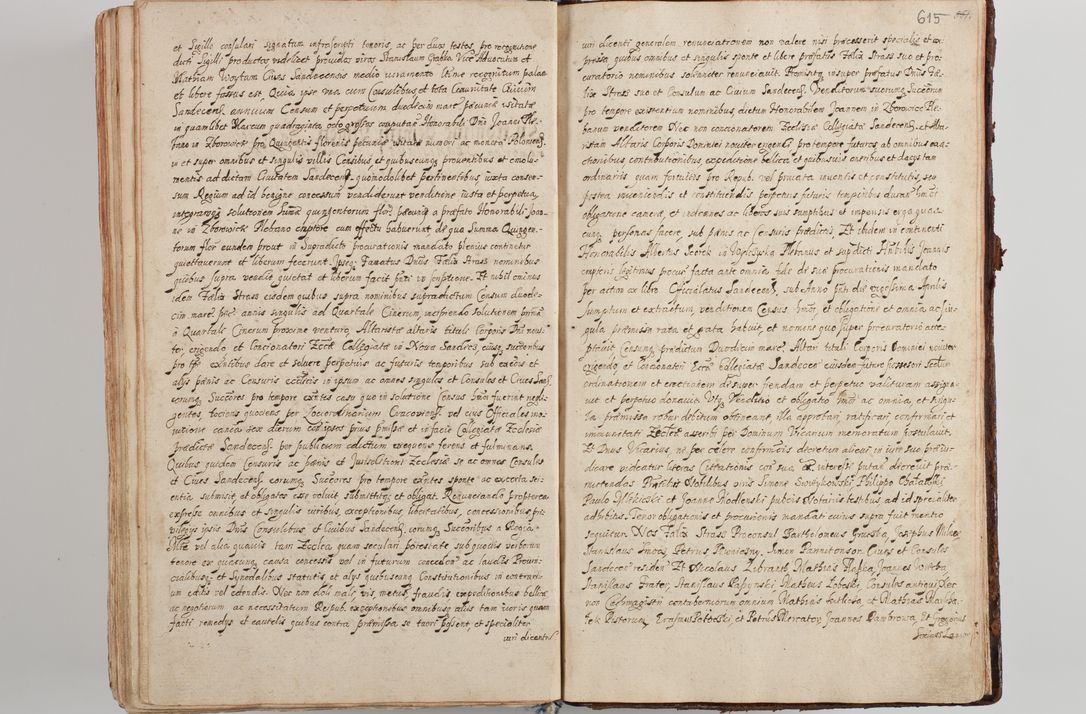 et Sigillo consulari signatum infrascripti tenoris, ac per duos testes pro recognitione
dicti Sigilli productos videlicet providos viros Stanislaum Grabka Vice Advocatum et
Mathiam Woytam Cives Sandecenses medio iuramento recognitum palam
et libere fassus est. Quia ipse una cum Consulibus et tota Comunitate Civium
Sandecens annuum Censum et perpetuum duodecim marc pecuniae usitatae
in quamlibet Marcam quadraginta octo grossos computando Honorabili Dno Joanni Ple-
bano in Zborowice pro Quingentis florenis pecuniae usitatae numeri ac monetae Polonicens
in et super omnibus et singulis villis Censibus et quibuscunque proventibus et emolu-
mentis ad dictam Civitatem Sandecens quomodolibet pertinentibus, iuxta consen-
sum Regium ad id benigne concessum vendiderunt venditione iusta et perpetua,
integramque solutionem Sumae quingentorum flor pecuniae a praefato Honorabili Joan-
ne in Zborowice Plebano emptore cum effectu habuerunt, de qua Summa Quingen-
torum flor eundem prout in Supradicto procurationis mandato plenius continetur
quietaverunt et liberum fecerunt. Ipseque Famatus Dnus Felix Strass nominibus
quibus supra vendit quietat et liberum facit pnti inscriptione. Et nihilominus
idem Felix Strass eisdem quibus supra nominibus supradictum Censum duode-
cim marc pec annis singulis ad Quartale Cinerum, incipiendo solutionem primam
a Quartali Cinerum proxime venturo, Altaristae altaris tituli Corporis Dni novi-
ter erigendo et Concionatori Eccle Collegiatae in Nova Sandecz, eiusque succoribus
pro tpe existentibus dare et solvere perpetuis ac futuris temporibus sub eadem et
alys paenis ac Censuris ecclesticis in ipsum ac omnes singulos et Consules et Cives Sand
eorumque Succores pro tempore exntes casu quo in solutione Census huius fuerint negli-
gentes, tocies quocies per Locordinarium Cracoviens vel eius Officiales mo-
nitione canonica sex dierum eos ipsos prius praemissa et in facie Collegiatae Ecclesiae
praedictae Sandecens per publicum edictum exequens ferens et fulminans.
Quibus quidem Censuris ac paenis et Jurisditioni Ecclesiae se ac omnes Consules
et Cives Sandecens eorumque Succores pro tempore exntes sponte ac ex certa sci-
entia submisit et obligatos esse voluit submittitque et obligat. Renunciando propterea
expresse omnibus et singulis iuribus, exceptionibus, libertatibus, concessionibus, pri-
vilegys ipsis Dnis Consulibus, et Civibus Sandecens eorumque Succoribus a Regia
Mtte vel alia quavis tam Ecclica quam seculari potestate sub quovis verborum
tenore ex quacunque causa concessis vel in futurum concedendis ac laudis Provin-
cialibusque et Synodalibus statutis et alys quibuscunque Constitutionibus in contrari-
um editis vel edendis. Nec non doli mali, vis, metus, fraudis expeditionibus bellicae
ac negotiorum ac necessitatum Reipub. exceptionibus omnibusque alys tam iuris quam
facti remedys et cautelis quibus contra praemissa se tueri possent, et specialiter
iuri dicentis
615
iuri dicenti generalem renunciationem non valere nisi praecesserit specialis et ex-
pressa quibus omnibus et singulis sponte et libere praefatus Felix Strass suo et pro-
curatorio nominibus solenniter renunciavit. Promisitque insuper praefatus Dnus Fe-
lix Strass suo et Consulum ac Civium Sandecens Venditorum suorumque Succorum
pro tempore existentium nominibus dictum Honorabilem Joannem in Zborowice Ple-
banum venditorem Nec non concionatorem Ecclesiae Collegiatae Sandecens et Alta-
ristam Altaris Corporis Dominici noviter erigend pro tempore futuros, ab omnibus exa-
ctionibus contributionibus expeditione bellica et quibusvis oneribus et dacys tam
ordinariis quam fortuitis pro Repub. vel privata inventis et constitutis, seu
postea inveniendis et constituendis perpetuis futuris temporibus durante hmoi
obligatione cavere, et indemnes ac liberos suis sumptibus et impensis erga quas-
cunque personas facere, sub paenis ac Censuris praedictis. Et ibidem in continenti
Honorabilis Albertus Secek in Wielicka Pletanus et supdicti Hnbilis Joannis
emptoris legitimus procur facta ante omnia fide de suo procurationis mandato
per action ex libro Officialatus Sandecens, sub Anno pnti die vigesima Aprilis
sumptum et extractum, venditionem Census hmoi, et obligatione et omnia ac sin-
gula praemissa rata et grata habuit, et nomine quo super procuratorio acce-
ptavit Censumque praedictum Duodecim marc Altari tituli Corporis Dominici noviter
erigendo et Concionatori Eccae Collegiatae Sandecen eiusdem future possessori secundum
ordinationem et erectionem desuper fiendam et perpetuo valituram assigna-
vit et perpetuo donavit. Utque Venditio et obligatio hmoi ac omnia, et singu-
la praemissa robur debitum obtineant, illa approbari, ratificari confirmari et
immunitati Ecclae asscribi per Dominum Vicarium memoratum postulavit.
Et Dnus Vicarius, ne per celere confirmois decretum alicui in iure suo praeiu-
dicare videatur literas Citationis con sua interesse putan decrevit prae-
mittendas Pntibus Nobilibus viris Simone Swiezkowski Philippo Obalinski
Paulo Ilkicki et Joanne Modlenski publicis Notariis testibus ad id specialiter
adhibitis. Tenor obligationis et procurationis mandati cuius supra fuit mentio
sequitur. Nos Felix Strass Proconsul Bartholomeus Gruszka, Josephus Miller,
Stanislaus Imos, Petrus Ronicsny, Simon Pannitonsor Cives et Consules
Sandecen residen Et Nicolaus Zebrant, Mathias Alesba, Joannes Woytba,
Stanislaus Frater, Stanislaus Papynski, Matheus Lobeski, Consules antiqui Nec
non Cechmagistri contuberniorum omnium Mathias Woiticha, et Mathias Marsza-
lek Pistorum, Erasmus Potocki, et Petrus Mercator, Joannes Dambrowa, Et Gregorius